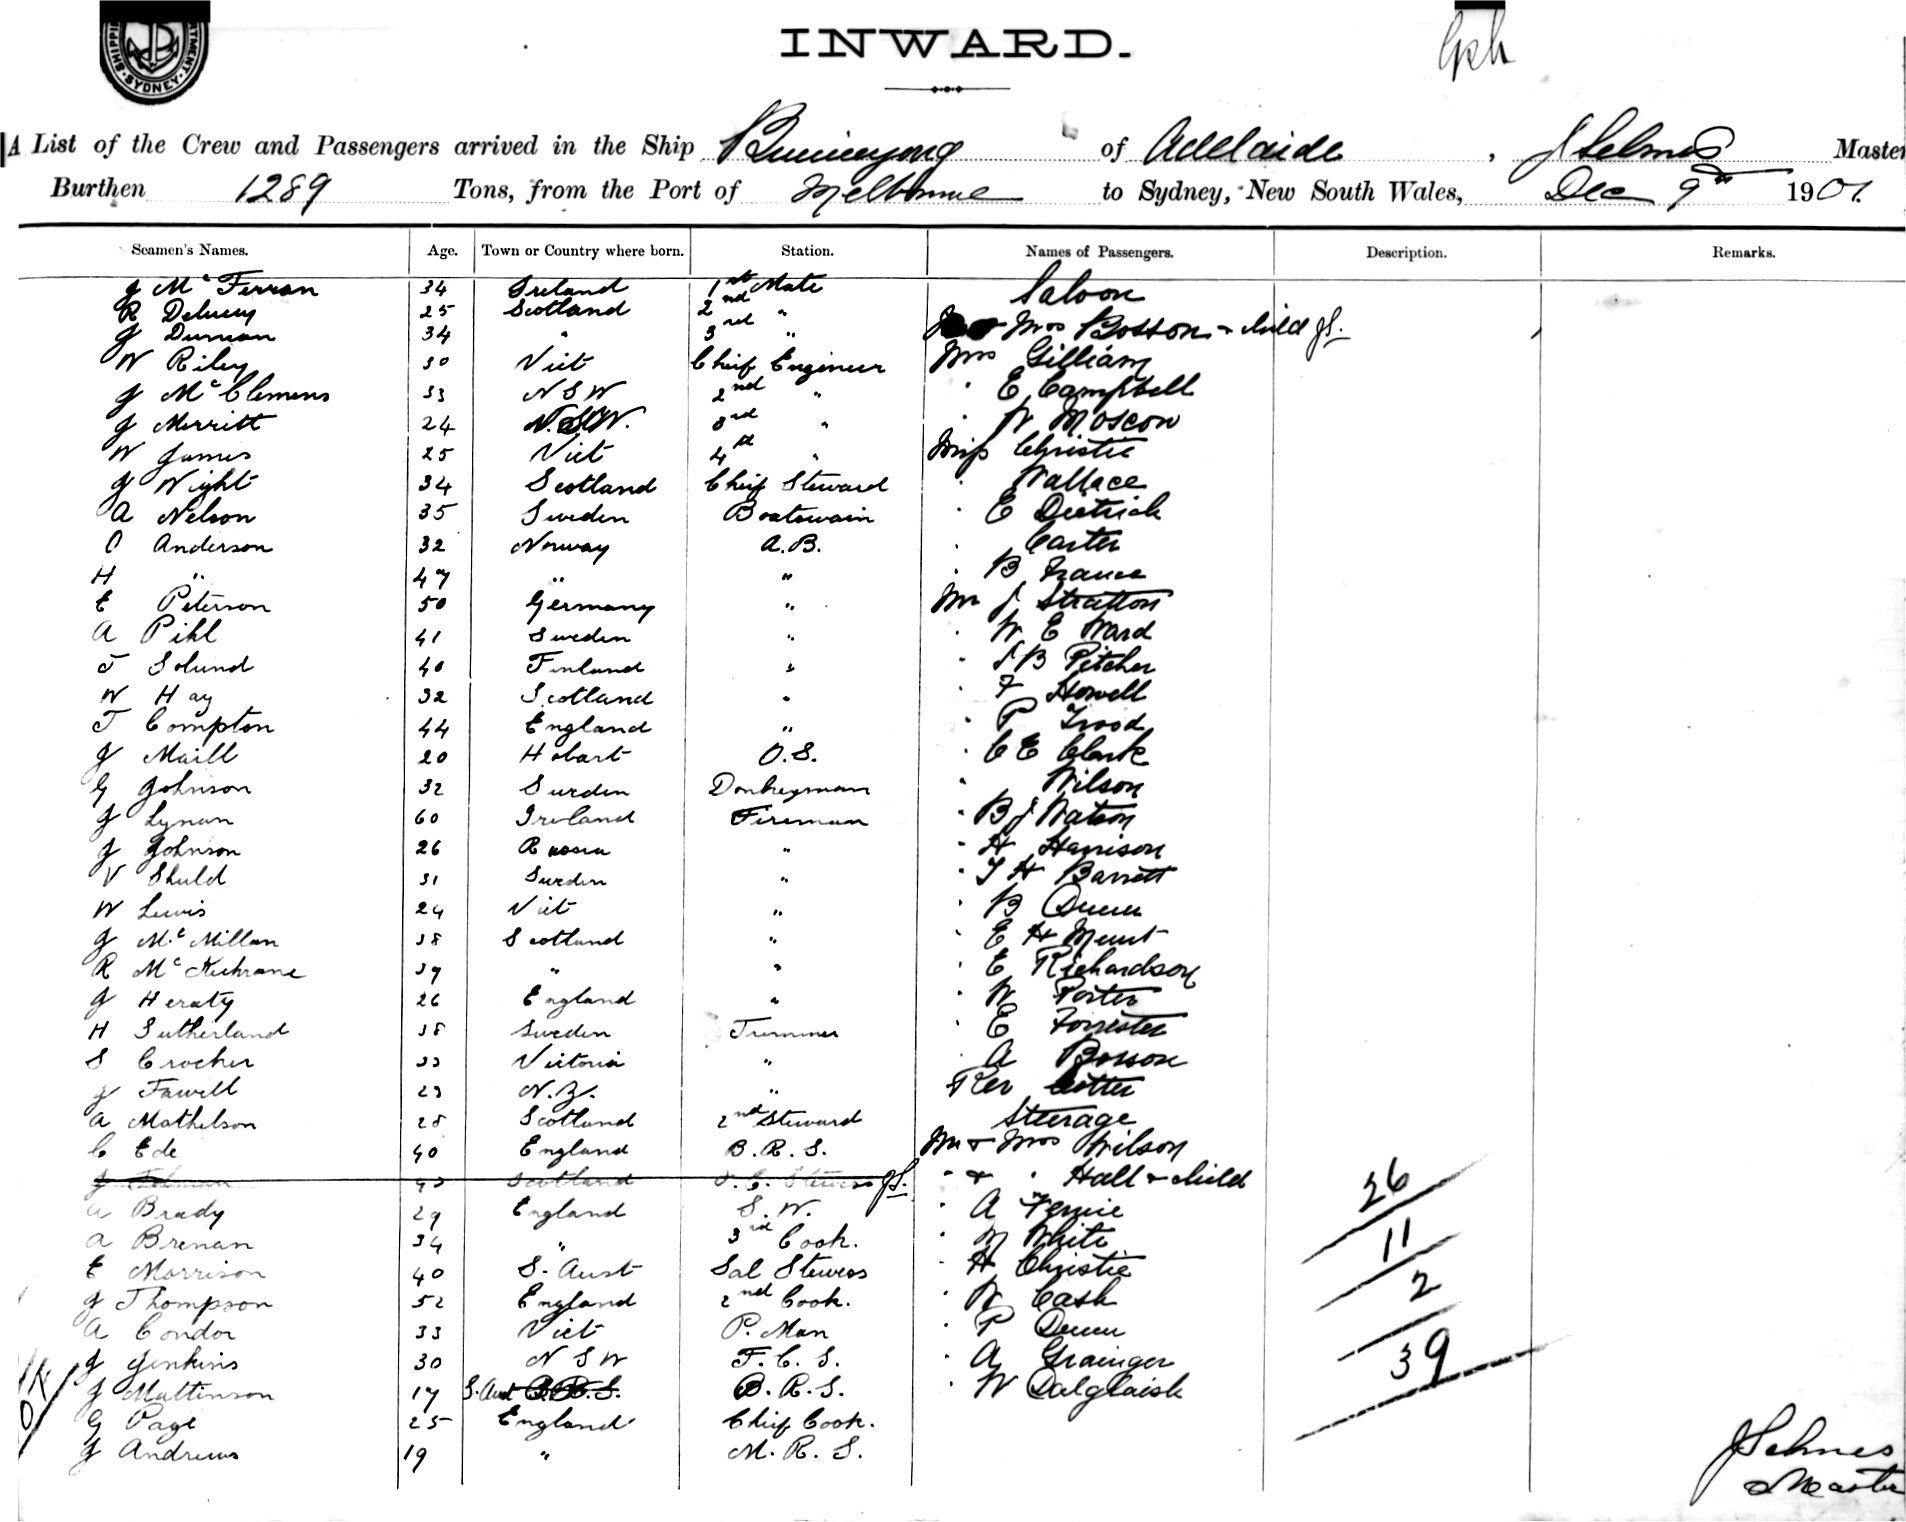 SYDNEY
INWARD.
A List of the Crew and Passengers arrived in the Ship Buninyong of Adelaide, J Selmes Master
Burthen 1289 Tons, from the Port of Melbourne to Sydney, New South Wales, Dec 9th 1901.
Seamen's Names. Age. Town or Country where born. Station. Names of Passengers. Description. Remarks.
J McFerran 34 Ireland 1st Mate Saloon
R Delury 25 Scotland 2nd "
J Duncan 34 " 3rd " Mrs Bosson & child JS.
W Riley 30 Vict Chief Engineer Mrs Gilliam
J McClemens 33 N S W 2nd " " E Campbell
J Merritt 24 N.S.W. 3rd " " W Moscow
W James 25 Vict 4th " Miss Christie
J Wight 34 Scotland Chief Steward " Wallace
A Nelson 35 Sweden Boatswain " E Dietrich
O Anderson 32 Norway A.B. " Carter
H " 47 " " " B France
E Peterson 50 Germany " Mr J Stratton
A Pihl 41 Sweden " " W E Ward
J Solund 40 Finland " " S B Pitcher
W Hay 32 Scotland " " F Howell
T Compton 44 England " " P Trood
J Maill 20 Hobart O.S. " C E Clark
G Johnson 32 Sweden Donkeyman " Wilson
J Lynan 60 Ireland Fireman " B J Watson
J Johnson 26 Russia " " H Harrison
V Shuld 31 Sweden " " T H Barrett
W Lewis 24 Vict " " B Dunn
J McMillan 38 Scotland " " E H Munt
R McKechrane 39 " " " E Richardson
J Heraty 26 England " " W Porter
H Sutherland 38 Sweden Trimmer " E Forrester
S Crocker 33 Victoria " " A Bosson
J Fawell 23 N.Z. " Rev Cotter
A Mathelson 28 Scotland 2nd Steward Steerage
C Ede 40 England B.R.S. Mr & Mrs Wilson
J Scotland JS. " & " Hall & child 26
A Brady 29 England S.W. " A Fernie
A Brenan 34 " 3rd Cook. " M White 11
E Morrison 40 S. Aust Sal Stewess " H Christie
J Thompson 52 England 2nd Cook. " W Cash 2
A Condor 33 Vict P. Man " P Dunn
J Jenkins 30 N S W F.C.S. " A Grainger 39
J Mattinson 17 S. Aust B.R.S. " W Dalglaish
G Page 25 England Chief Cook.
J Andrews 19 " M.R.S.
J Selmes
Master